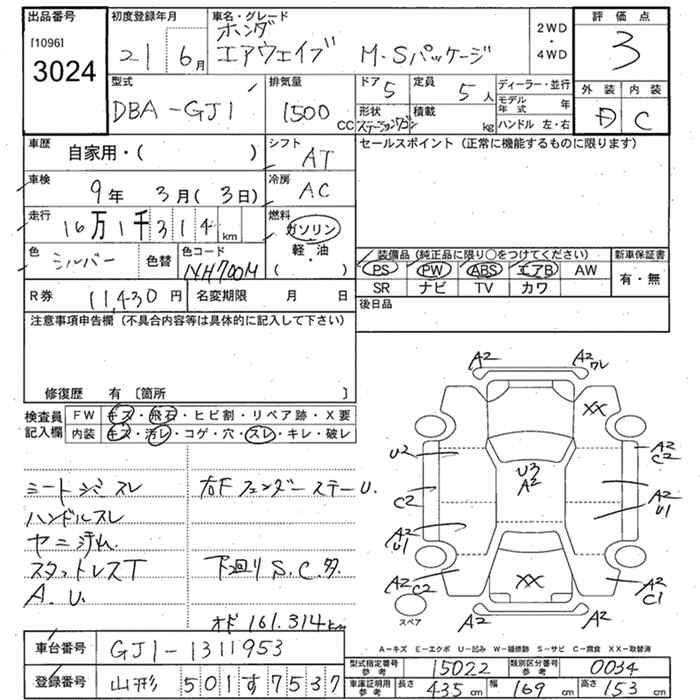 出品番号
[1096]
3024
初度登録年月
21年 6月
車名・グレード
ホンダ
エアウェイブ M・Sパッケージ
2WD
・
4WD
評価点
3
外装 内装
D C
型式
DBA-GJ1
排気量
1500 CC
ドア 5
定員 5人
形状 ステーションワゴン
積載 kg
ディーラー・並行
モデル年式 年
ハンドル 左・右
車歴
自家用・( )
シフト
AT
セールスポイント (正常に機能するものに限ります)
車検
9年 3月( 3日)
冷房
AC
走行
16万1千314km
燃料
ガソリン
軽・油
( )
色
シルバー
色替
色コード
NH700M
装備品 (純正品に限り○をつけてください)
新車保証書
PS PW ABS エアB AW
SR ナビ TV カワ
有・無
R券 11,430円
名変期限 月 日
後日品
注意事項申告欄 (不具合内容等は具体的に記入して下さい)
修復歴 有 [箇所 ]
検査員
記入欄
FW キズ・飛石・ヒビ割・リペア跡・X要
内装 キズ・汚レ・コゲ・穴・スレ・キレ・破レ
シートジミスレ
ハンドルスレ
ヤニ汚れ
スタットレスT
A.U.
右FフェンダーステーU.
下回りS.C.タ.
オド161.314km
A2
A2ワレ
XX
U2
U3
A2
A2
C2
C2
A2
U1
A2
U1
A2
C2
XX
A2
C1
A2
A2
スペア
A-キズ E-エクボ U-凹み W-補修跡 S-サビ C-腐食 XX-取替済
車台番号
GJ1-1311953
登録番号
山形 501す7537
型式指定番号
参考
15022
類別区分番号
参考
0034
車庫証明用
参考
長さ 435cm
幅 169cm
高さ 153cm